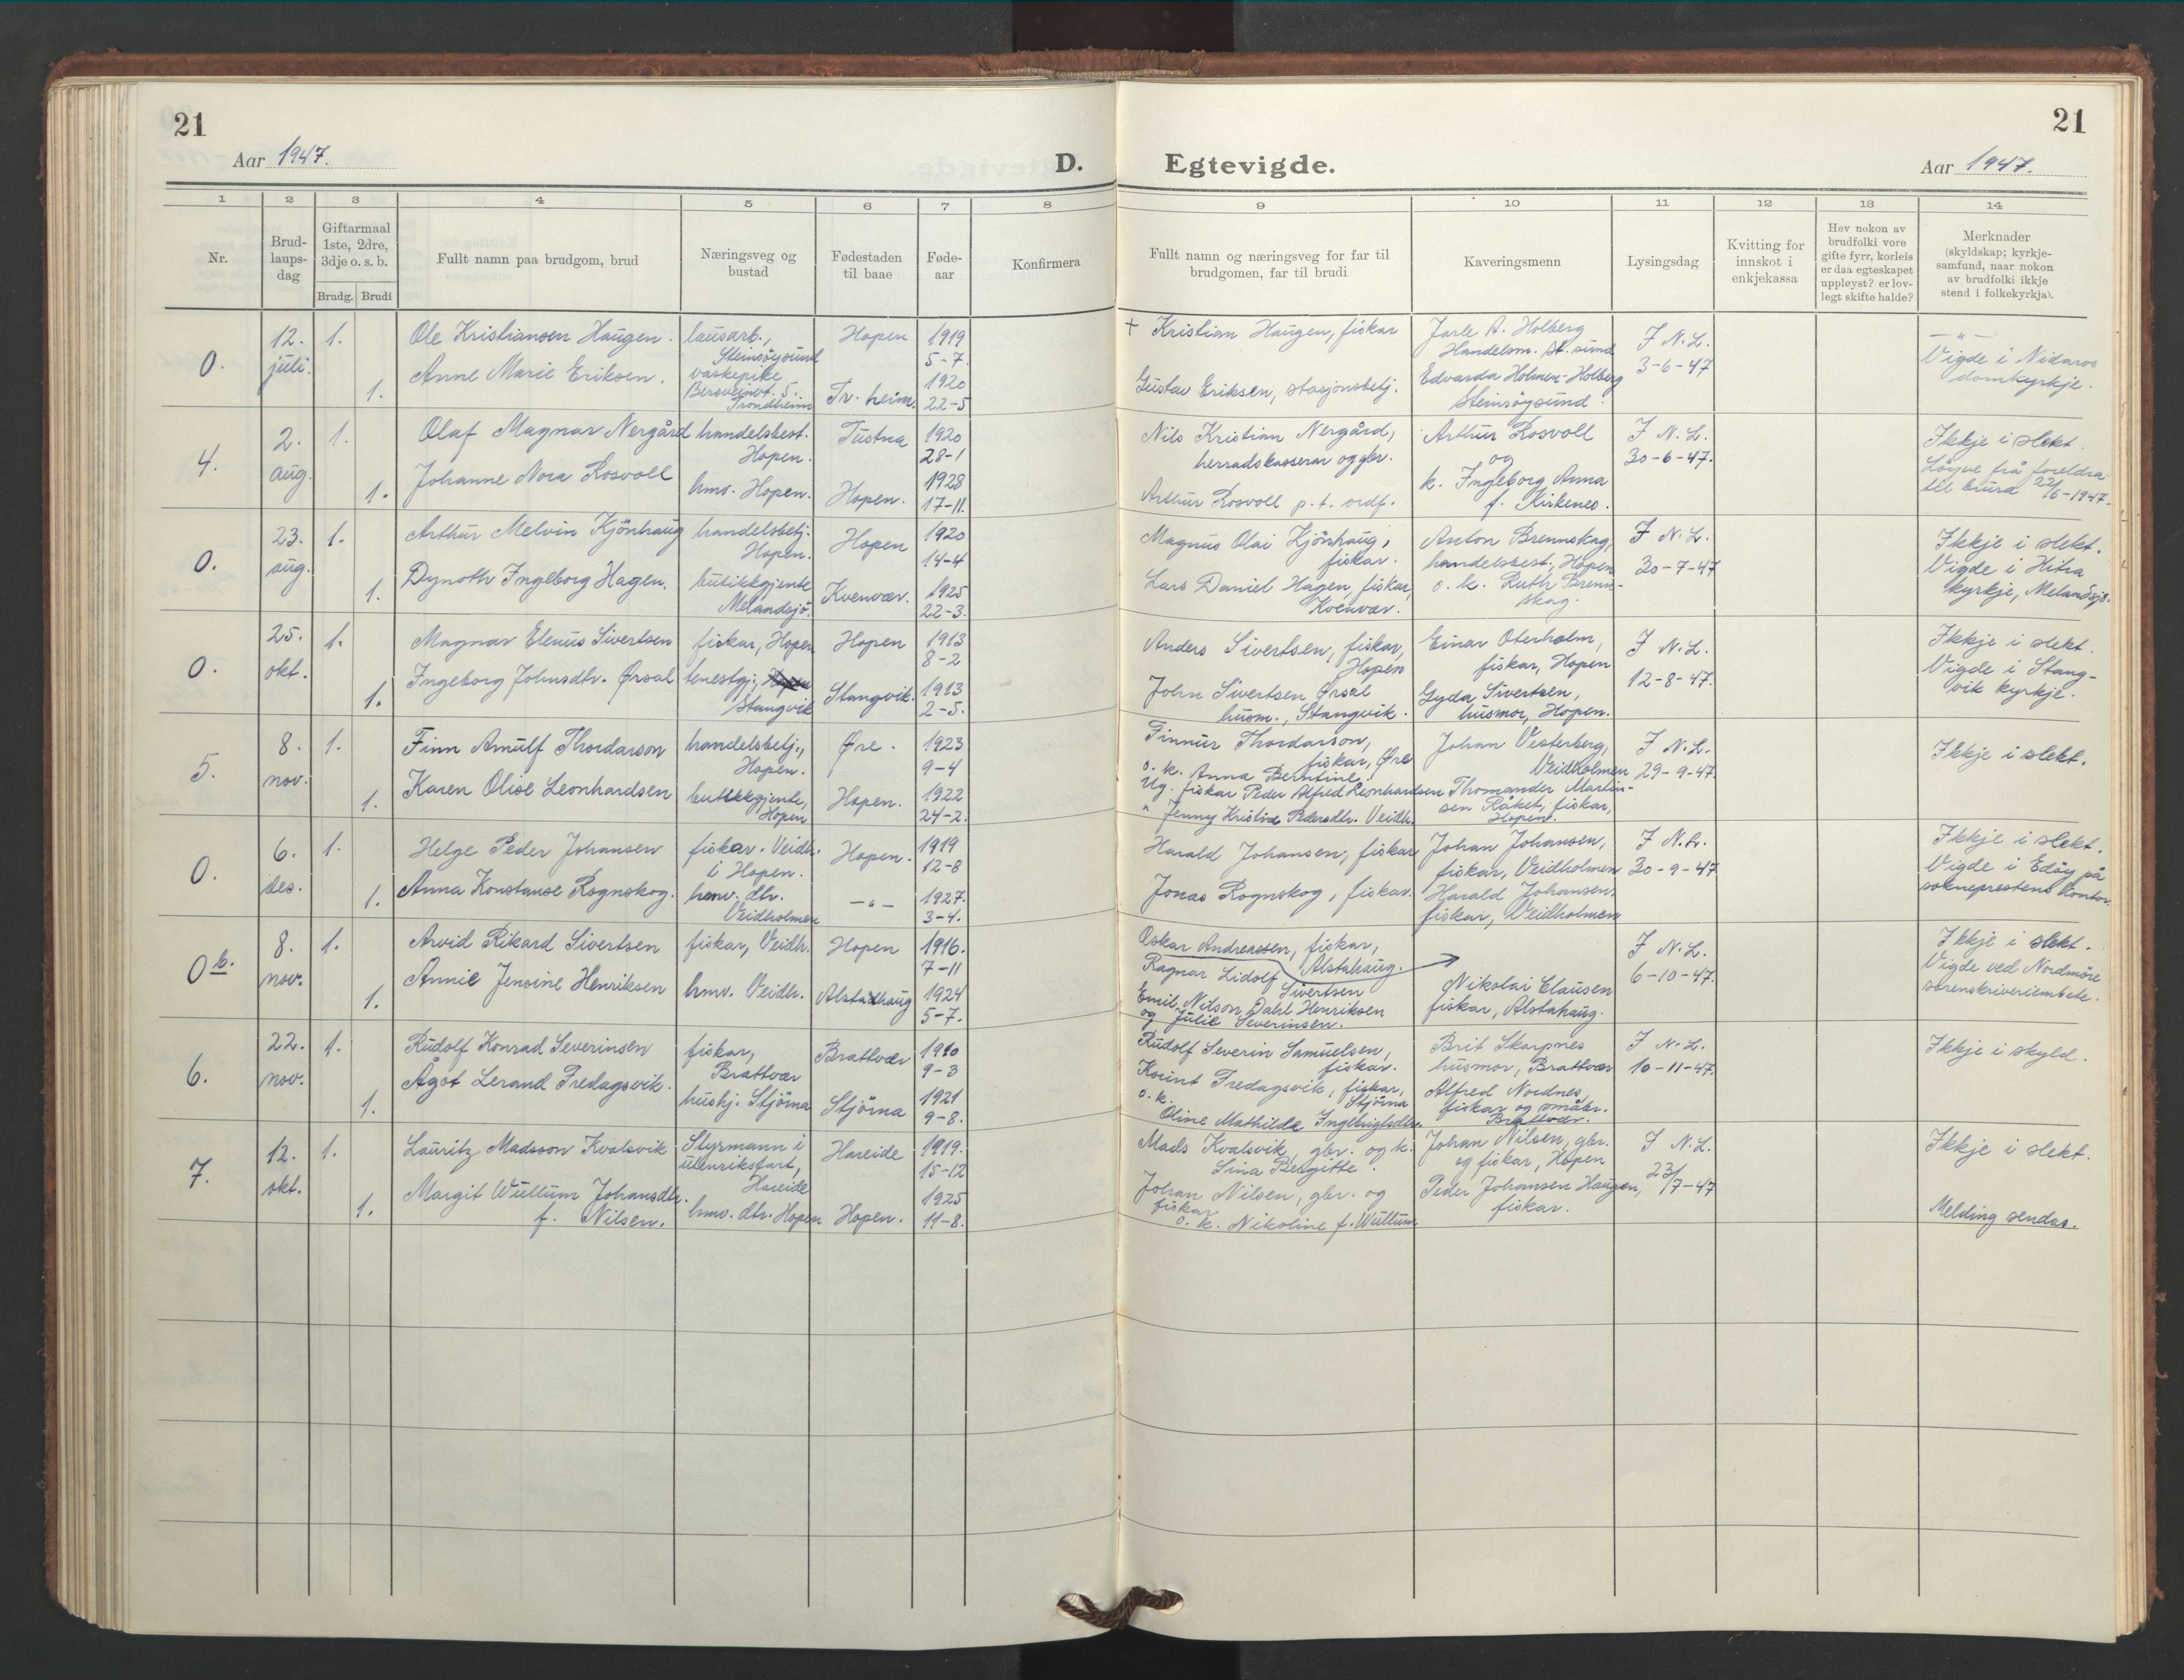 21
Aar 1947.
D.
1 2 3 4 5 6 7 8
Nr.
Brud-
laups-
dag
Giftarmaal
1ste, 2dre,
3dje o. s. b.
Brudg. Brudi
Fullt namn paa brudgom, brud
Næringsveg og
bustad
Fødestaden
til baae
Føde-
aar
Konfirmera
0.
12.
juli.
1.
1.
Ole Kristiansen Haugen.
Anne Marie Eriksen.
lausarb.,
Steinsöysund
vaskepike
Bersveinvt. 5.
Trondheim
Hopen
Tr. heim.
1919
5-7.
1920
22-5
4.
2.
aug.
1.
1.
Olaf Magnar Nergård
Johanne Nora Rosvoll
handelsbest.
Hopen.
hmv. Hopen.
Tustna
Hopen.
1920
28-1
1928
17-11.
0.
23.
aug.
1.
1.
Arthur Melvin Kjönhaug
Dynoth Ingeborg Hagen.
handelsbetj.
Hopen.
butikkgjente
Melandsjö.
Hopen
Kvenvær.
1920
14-4
1925
22-3.
0.
25.
okt.
1.
1.
Magnar Elenus Sivertsen
Ingeborg Johnsdtr. Ørsal
fiskar, Hopen
tenestgj.,
Stangvik
Hopen
Stangvik.
1913
8-2
1913
2-5.
5.
8.
nov.
1.
1.
Finn Arnulf Thordarson
Karen Olise Leonhardsen
handelsbetj.,
Hopen.
butikkgjente,
Hopen
Øre.
Hopen.
1923
9-4
1922
24-2.
0.
6.
des.
1.
1.
Helge Peder Johansen
Anna Konstanse Rognskog.
fiskar. Veidh.
i Hopen.
hmv. dtr.
Veidholmen
Hopen.
-"-
1919
12-8
1927.
3-4.
0 b.
8.
nov.
1.
1.
Arvid Rikard Sivertsen
Annie Jensine Henriksen
fiskar, Veidh.
hmv. Veidh.
Hopen
Alstadhaug
1916.
7-11
1924
5-7.
6.
22.
nov.
1.
1.
Rudolf Konrad Severinsen
Ågot Lerand Fredagsvik.
fiskar,
Brattvær
hushj. Stjörna
Brattvær
Stjörna
1910
9-3
1921
9-8.
7.
12.
okt.
1.
1.
Lauritz Madsson Kvalsvik
Margit Wullum Johansdtr.
f. Nilsen.
Styrmann i
utenriksfart,
Hareide
hmv. dtr. Hopen
Hareide
Hopen.
1919.
15-12
1925
11-8.
21
Egtevigde.
Aar 1947.
9 10 11 12 13 14
Fullt namn og næringsveg for far til
brudgomen, far til brudi
Kaveringsmenn
Lysingsdag
Kvitting for
innskot i
enkjekassa
Hev nokon av
brudfolki vore
gifte fyrr, korleis
er daa egteskapet
uppløyst? er lov-
legt skifte halde?
Merknader
(skyldskap; kyrkje-
samfund, naar nokon
av brudfolki ikkje
stend i folkekyrkja).
+ Kristian Haugen, fiskar
Gustav Eriksen, stasjonsbetj.
Jarle A. Holberg
Handelsm. St. sund
Edvarda Holmen-Holberg
Steinsöysund.
F N.L.
3-6-47
-"-
Vigde i Nidaros
domkyrkje.
Nils Kristian Nergård,
herradskasserar og gbr.
Arthur Rosvoll p.t. ordf.
Arthur Rosvoll
og
k. Ingeborg Anna
f. Kirkenes.
F N.L.
30-6-47.
Ikkje i slekt.
Löyve frå foreldra
til brura 22/6-1947.
Magnus Olai Kjönhaug,
fiskar.
Lars Daniel Hagen, fiskar,
Kvenvær.
Anton Brennskag,
handelsbest., Hopen
o. k. Ruth Brenn-
skag.
F N.L.
30-7-47
Ikkje i slekt.
Vigde i Hitra
kyrkje, Melandsjö.
Anders Sivertsen, fiskar,
Hopen
John Sivertsen Ørsal
husm., Stangvik.
Einar Oterholm,
fiskar, Hopen
Gyda Sivertsen,
husmor, Hopen.
F N.L.
12-8-47.
Ikkje i slekt.
Vigde i Stang-
vik kyrkje.
Finnur Thordarson,
fiskar, Øre
o. k. Anna Berntine.
Ug. fiskar Peder Alfred Leonhardsen
" Jenny Kristine Pedersdtr. Veidh.
Johan Vesterberg,
Veidholmen
Thomander Martin-
sen Råket, fiskar,
Hopen.
F N.L.
29-9-47.
Ikkje i slekt.
Harald Johansen, fiskar
Jonas Rognskog, fiskar.
Johan Johansen,
fiskar, Veidholmen
Harald Johansen,
fiskar, Veidholmen
F N.L.
30-9-47
Ikkje i slekt.
Vigde i Edöy på
sokneprestens kontor.
Oskar Andreassen, fiskar,
Alstahaug.
Ragnar Lidolf Sivertsen
Emil Nilson Dahl Henriksen
og Julie Severinsen.
Nikolai Clausen
fiskar, Alstahaug.
F N.L.
6-10-47.
Ikkje i slekt.
Vigde ved Nordmöre
sorenskriverembete.
Rudolf Severin Samuelsen,
fiskar.
Korint Fredagsvik, fiskar,
Stjörna
o. k.
Oline Mathilde Ingebrigtsdtr.
Brit Skarpnes
husmor, Brattvær
Alfred Nordnes,
fiskar og småbr.
Brattvær.
F N.L.
10-11-47.
Ikkje i skyld.
Mads Kvalsvik, gbr. og k.
Sina Bergitte.
Johan Nilsen, gbr. og
fiskar
o. k. Nikoline f. Wullum
Johan Nilsen, gbr.
og fiskar, Hopen
Peder Johansen Haugen,
fiskar.
F N.L.
23/7-47
Ikkje i slekt.
Melding sendas.